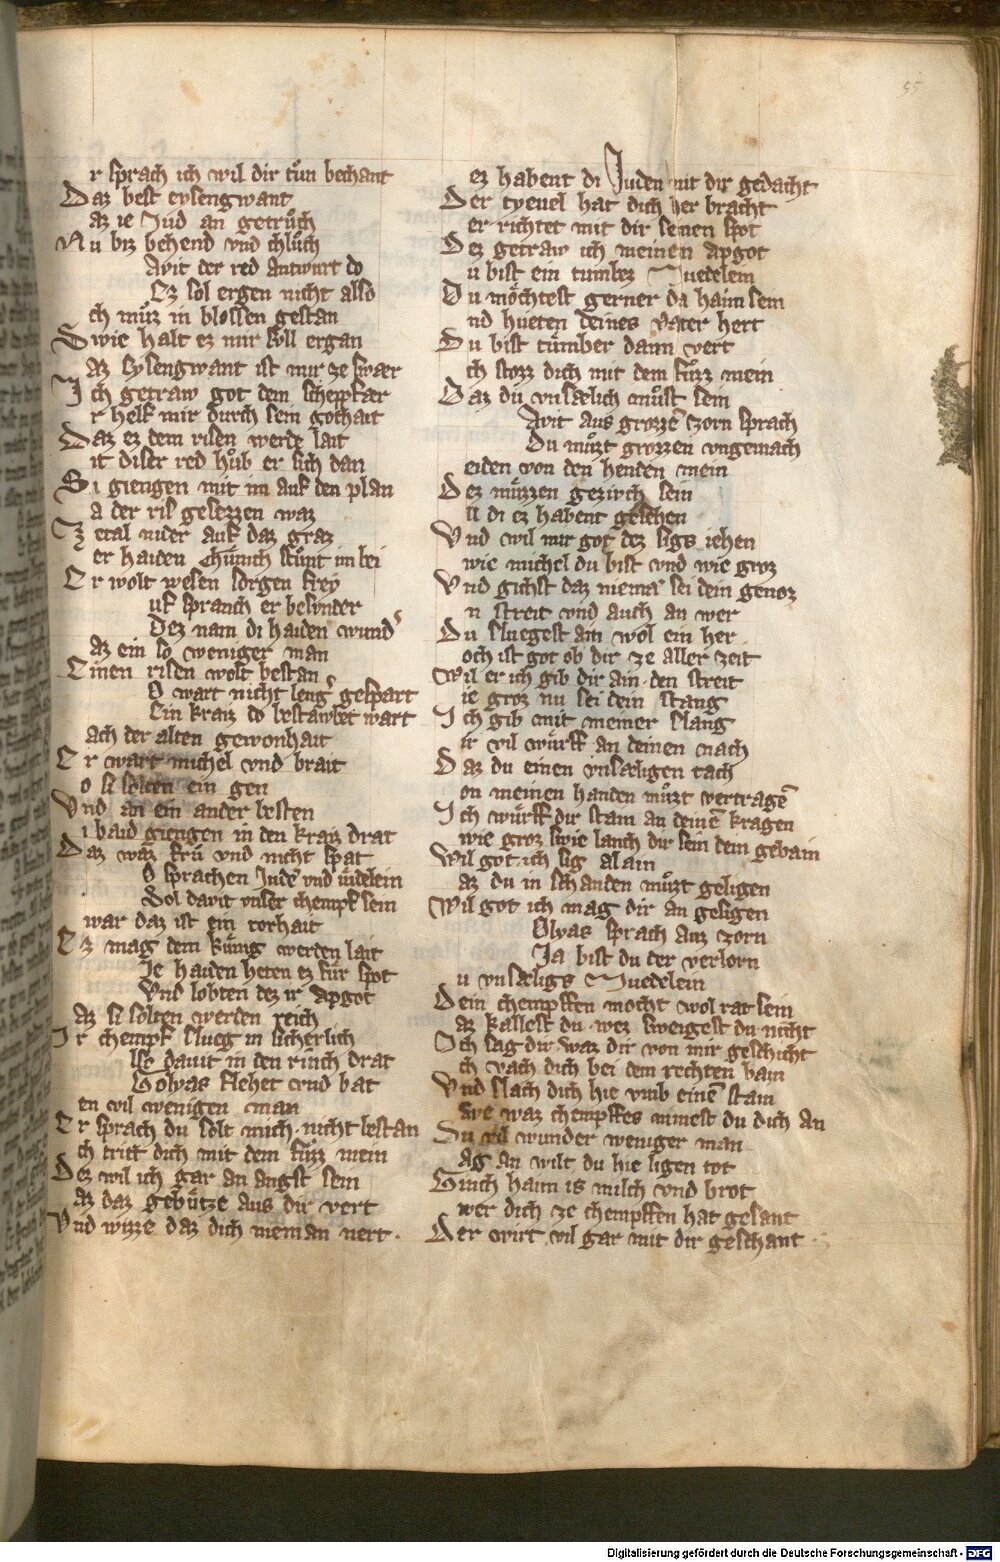 55
r sprach ich wil dir tuͦn bechant
Daz best eysengwant
az ie Jud an getruͦch
Nu biz behend vnd chluͦch
Auit der red antwurt do
Ez sol ergen nicht also
ch muͦz in blossen gestan
Swie halt ez mir sull ergan
Az Eysengwant ist mir ze swaer
Ich getraw got dem schepfaer
r helf mir durch sein gothait
Daz ez dem risen werde lait
it diser red huͦb er sich dan
Si giengen mit im auf den plan
a der ris gesezzen waz
Ze tal nider auf daz graz
er haiden Chuͤnich stuͦnt im bei
Er wolt wesen sorgen frey
uf spranch er besunder
Dez nam di haiden wund'
az ein so weniger man
Einen risen wolt bestan
O wart nicht leng' gespart
Ein kraiz do bestaubet wart
ach der alten gewonhait
Er wart michel vnd brait
o si solten ein gen
Vnd an ein ander besten
i baid giengen in den kraiz drat
Daz waz fruͦ vnd nicht spat
O sprachen Judē vnd iudelein
Sol dauit vnser chempf sein
war daz ist ein torhait
Ez mag dem kuͤnig werden lait
Je haiden heten ez fuͤr spot
Vnd lobten dez ir apgot
az si solten werden reich
Ir chempf slueg in sicherlich
lso dauit in den rinch drat
Golyas flehet vnd bat
en vil wenigen man
Er sprach du solt mich nicht bestan
ch tritt dich mit dem fuͤzz mein
Dez wil ich gar an angst sein
az daz gebuͤtze aus dir vert
Vnd wizze daz dich nieman nert.
ez habent di Juden mit dir gedacht
Der tyeuel hat dich her bracht
er richtet mit dir seinen spot
Dez getraw ich meinen apgot
u bist ein tumbez Juedelein
Du moͤchtest gerner da haim sein
nd hueten deines vater hert
Du bist tuͤmber dann vert
ch stozz dich mit dem fuͦzz mein
Daz du vnsaelich muͦst sein
Auit aus grozzē zorn sprach
Du muͦzt grozzen vngemach
eiden von den henden mein
Dez muͤzzen gezirch sein
ll di ez habent gesehen
Vnd wil mir got dez sigs iehen
wie michel du bist vnd wie groz
Vnd gichst daz niemā sei dein genoz
n streit vnd auch an wer
Du sluegest ain wol ein her
och ist got ob dir ze aller zeit
Wil er ich gib dir ain den streit
ie groz nu sei dein stang
Ich gib mit meiner slang
ir vil wuͤrff an deinen nach
Daz du einen vnsaeligen rach
on meinen handen muͦzt vertragē
Ich wuͤrff dir stain an deinē kragen
wie groz swie lanch dir sein dein gebain
Wil got ich sig al ain
az du in schanden muͦzt geligen
Wil got ich mag dir an gesigen
Olyas sprach auz zorn
Ja bist du der verlorn
u vnsaeligs Juedelein
Dein chempffen mocht wol rat sein
az kallest du wez sweigest du nicht
Ich sag dir waz dir von mir geschicht
ch vach dich bei dem rechten bain
Vnd slach dich hie vmb einē stain
we waz chempffes nimest du dich an
Du vil wunder weniger man
ag an wilt du hie ligen tot
Ginch haim is milch vnd brot
wer dich ze chempffen hat gesant
Der wirt vil gar mit dir geschant
Digitalisierung gefördert durch die Deutsche Forschungsgemeinschaft - DFG